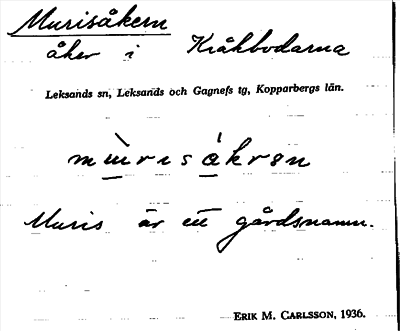 Murisåkern
åker i Kråkbodarna
Leksands sn, Leksands och Gagnefs tg, Kopparbergs län.
mùrisákrən
Muris är ett gårdsnamn.
ERIK M. CARLSSON, 1936.